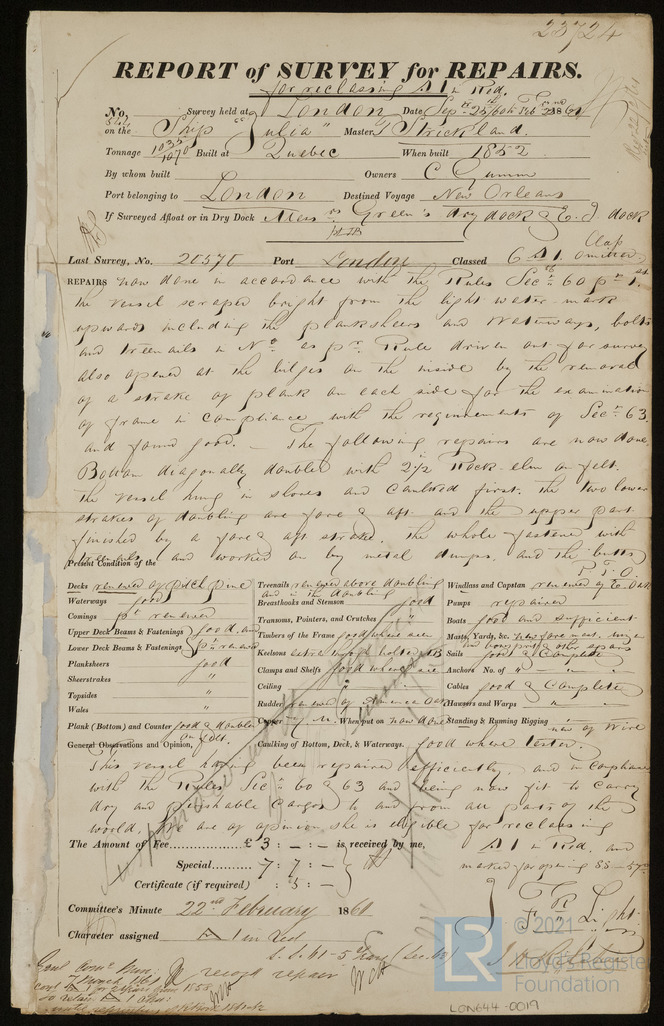 23724
REPORT of SURVEY for REPAIRS.
for reclassing A 1 in Red.
No. Survey held at London Date, Sep 25
on the Ship "Julia" Master T Strickland.
Tonnage 1035/1070 Built at Quebec When built 1852
By whom built Owners C Gumm
Port belonging to London Destined Voyage New Orleans
If Surveyed Afloat or in Dry Dock Messrs Green's dry dock & E. I dock
Last Survey, No. 20570 Port London Classed 6 A 1. Clap omitted
REPAIRS now done in accordance with the Rules Secn 60 pt 1st.
the vessel scraped bright from the light water mark
upwards including the planksheers and Waterways, bolts
and treenails in No. as pr. Rule driven out for survey
also opened at the bilges on the inside by the removal
of a strake of plank on each side for the examination
of frame in compliance with the requirements of Secn 63.
and found good. — The following repairs are now done
Bottom diagonally doubled with 2 1/2 Rock elm on felt.
the vessel hung in shores and caulked first. the two lower
strakes of doubling are fore & aft and the upper part
finished by a fore & aft strake. the whole fastened with
treenails and worked on by metal dumps, and the butts
P. T. O.
Present Condition of the
Decks renewed of pitch pine Treenails renewed above doubling and in the doubling Windlass and Capstan renewed of E. Oak
Waterways good Breasthooks and Stemson good Pumps repaired
Comings pt renewed Transoms, Pointers, and Crutches " Boats good and sufficient
Upper Deck Beams & Fastenings good, and Timbers of the Frame good where seen Masts, Yards, &c. new fore mast,
Lower Deck Beams & Fastenings pt renewed Keelsons extra through bolted Sails good & Complete
Planksheers good Clamps and Shelfs good where seen Anchors No. of "
Sheerstrakes " Ceiling " Cables good & Complete
Topsides " Rudder renewed of American Oak Hawsers and Warps "
Wales " Copper y m. When put on now done Standing & Running Rigging new of Wire
Plank (Bottom) and Counter good & doubled on felt. Caulking of Bottom, Deck, & Waterways. good where tested.
General Observations and Opinion,
This vessel having been repaired efficiently, and in compliance
with the Rules Secn 60 & 63 and being now fit to carry
dry and perishable Cargoes to and from all parts of the
world, We are of opinion she is eligible for reclassing
A 1 in Red. and
The Amount of Fee..............£ 3 : - : - is received by me,
marked for opening
Special............ 7 : 7 : -
Certificate (if required) : 5 : -
Light
Committee's Minute 22nd February 1861
Character assigned A 1 in red
record repair
© 2021
LR
Lloyd's Register
Foundation
LON644-0019